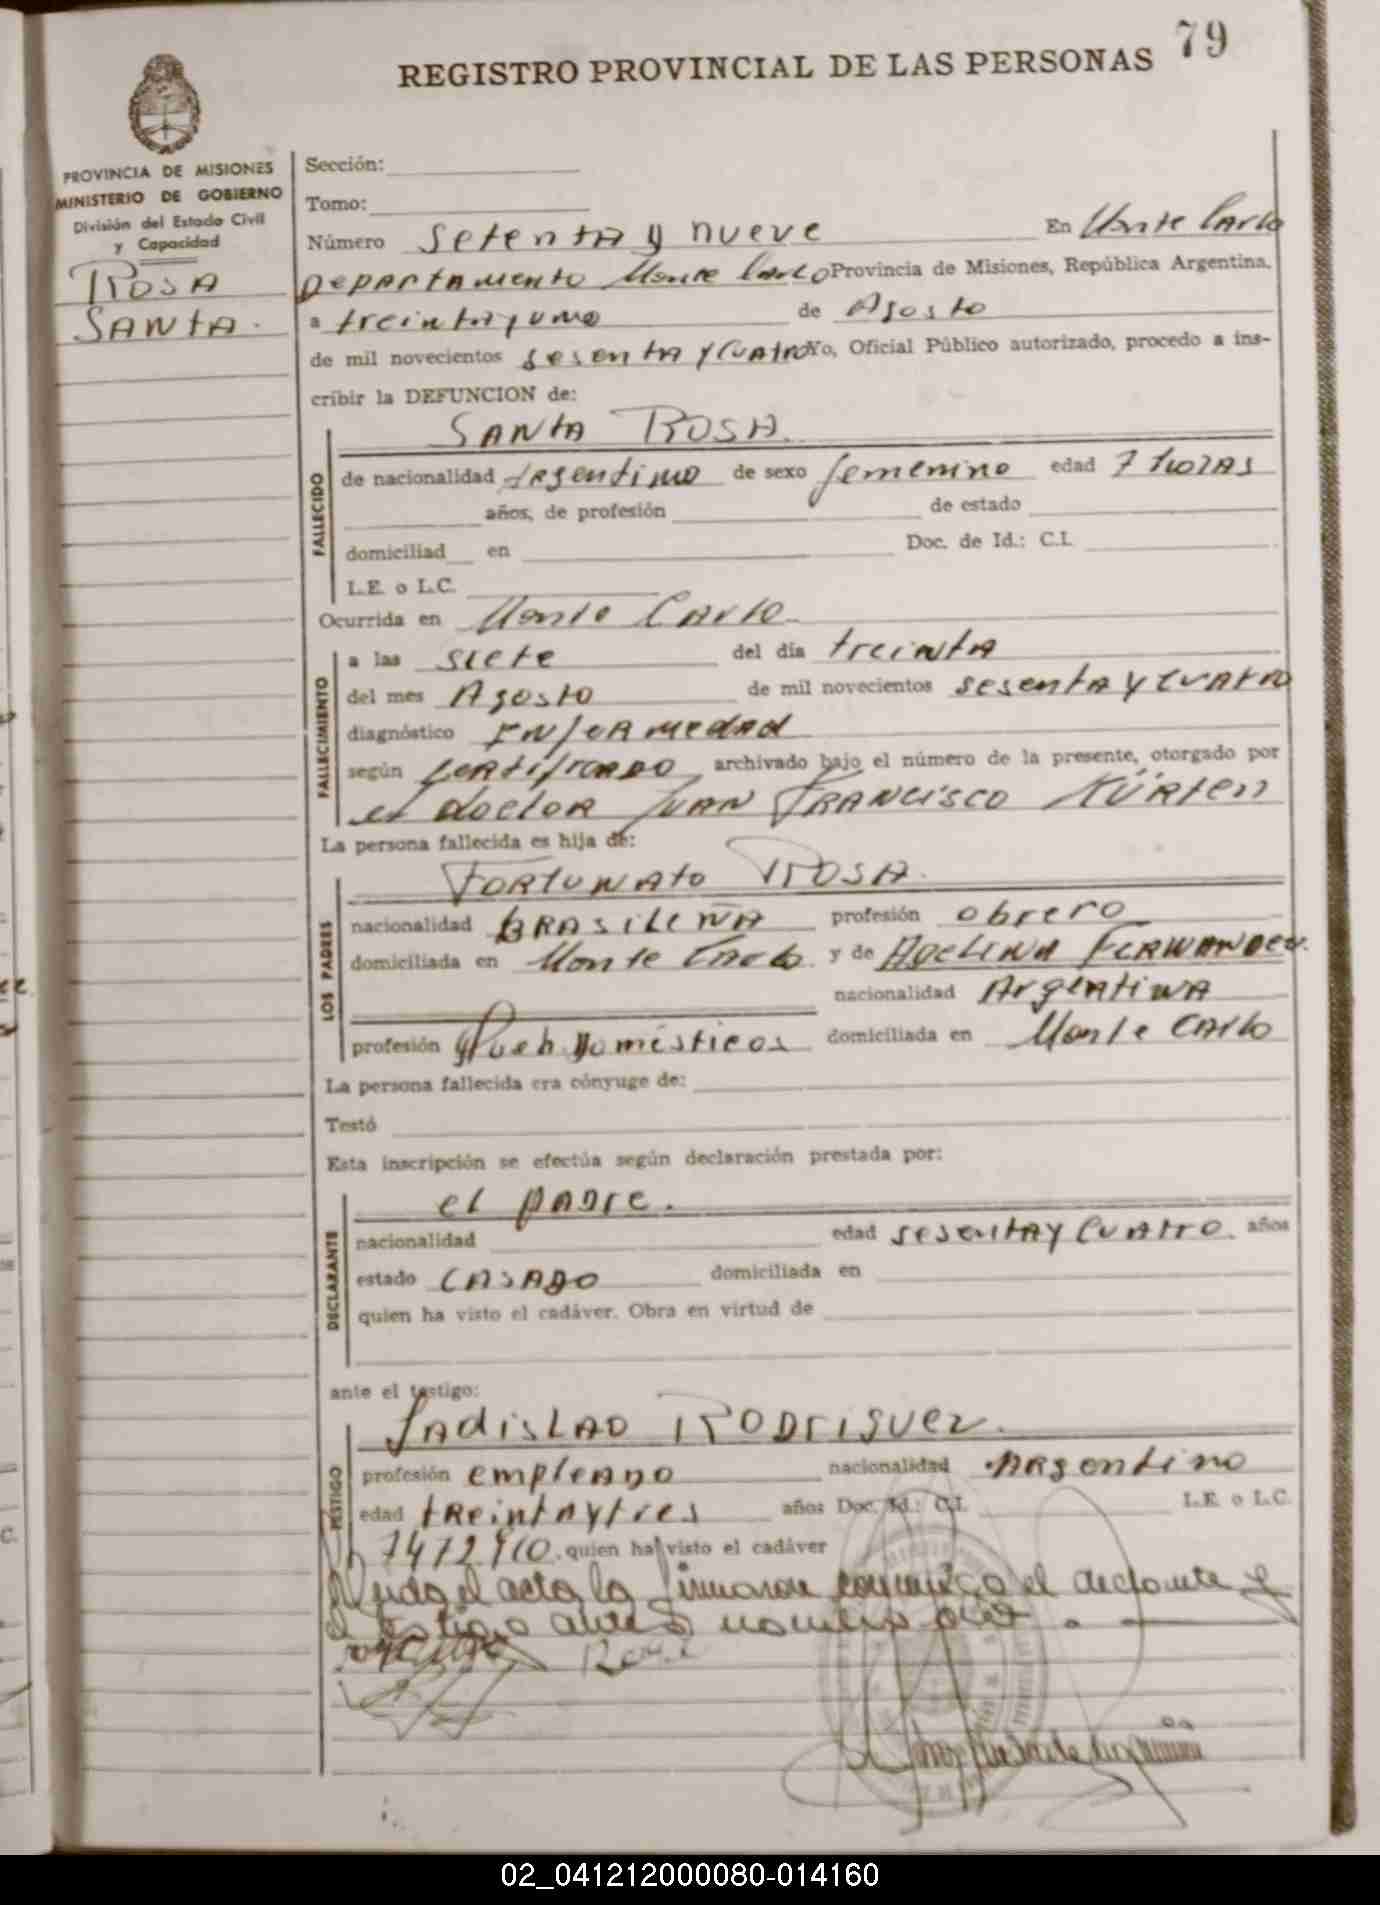 79
REGISTRO PROVINCIAL DE LAS PERSONAS
PROVINCIA DE MISIONES
MINISTERIO DE GOBIERNO
División del Estado Civil
y Capacidad
ROSA
SANTA.
Sección:
Tomo:
Número setenta y nueve En Monte Carlo
Departamento Monte Carlo Provincia de Misiones, República Argentina,
a treinta y uno de Agosto
de mil novecientos sesenta y cuatro Yo, Oficial Público autorizado, procedo a ins-
cribir la DEFUNCION de:
SANTA ROSA.
FALLECIDO
de nacionalidad Argentino de sexo femenino edad 7 horas
años, de profesión de estado
domiciliad en Doc. de Id.: C.I.
L.E. o L.C.
Ocurrida en Monte Carlo.
FALLECIMIENTO
a las siete del día treinta
del mes Agosto de mil novecientos sesenta y cuatro
diagnóstico Enfermedad
según certificado archivado bajo el número de la presente, otorgado por
el doctor Juan Francisco Kürten
La persona fallecida es hija de:
FORTUNATO ROSA.
LOS PADRES
nacionalidad BRASILEÑA profesión obrero
domiciliada en Monte Carlo y de ADELINA FERNANDEZ.
nacionalidad Argentina
profesión Domésticos domiciliada en Monte Carlo
La persona fallecida era cónyuge de:
Testó
Esta inscripción se efectúa según declaración prestada por:
el padre.
DECLARANTE
nacionalidad edad sesenta y cuatro años
estado CASADO domiciliada en
quien ha visto el cadáver. Obra en virtud de
ante el testigo:
Ladislao Rodriguez.
TESTIGO
profesión empleado nacionalidad Argentino
edad treinta y tres años Doc. Id.: C.I. L.E. o L.C.
7472910. quien ha visto el cadáver
el acta la firmaron conmigo el declarante y
el testigo
Rosa
02_041212000080-014160